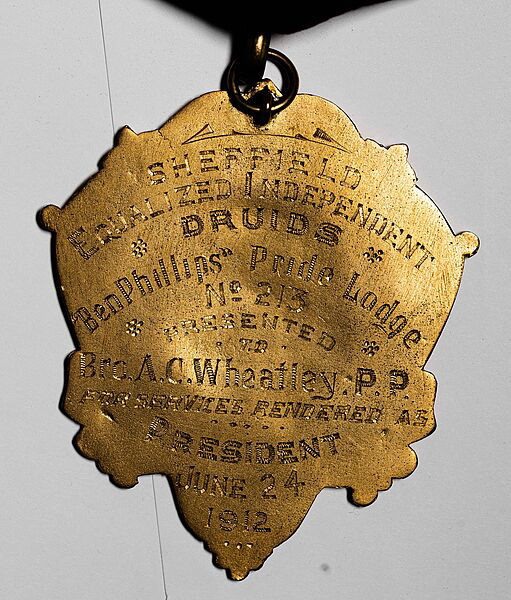 SHEFFIELD
EQUALIZED INDEPENDENT
DRUIDS
"Ben Phillips" Pride Lodge
No 213
PRESENTED
TO
Bro. A.C. Wheatley. P.P.
FOR SERVICES RENDERED AS
PRESIDENT
JUNE 24
1912